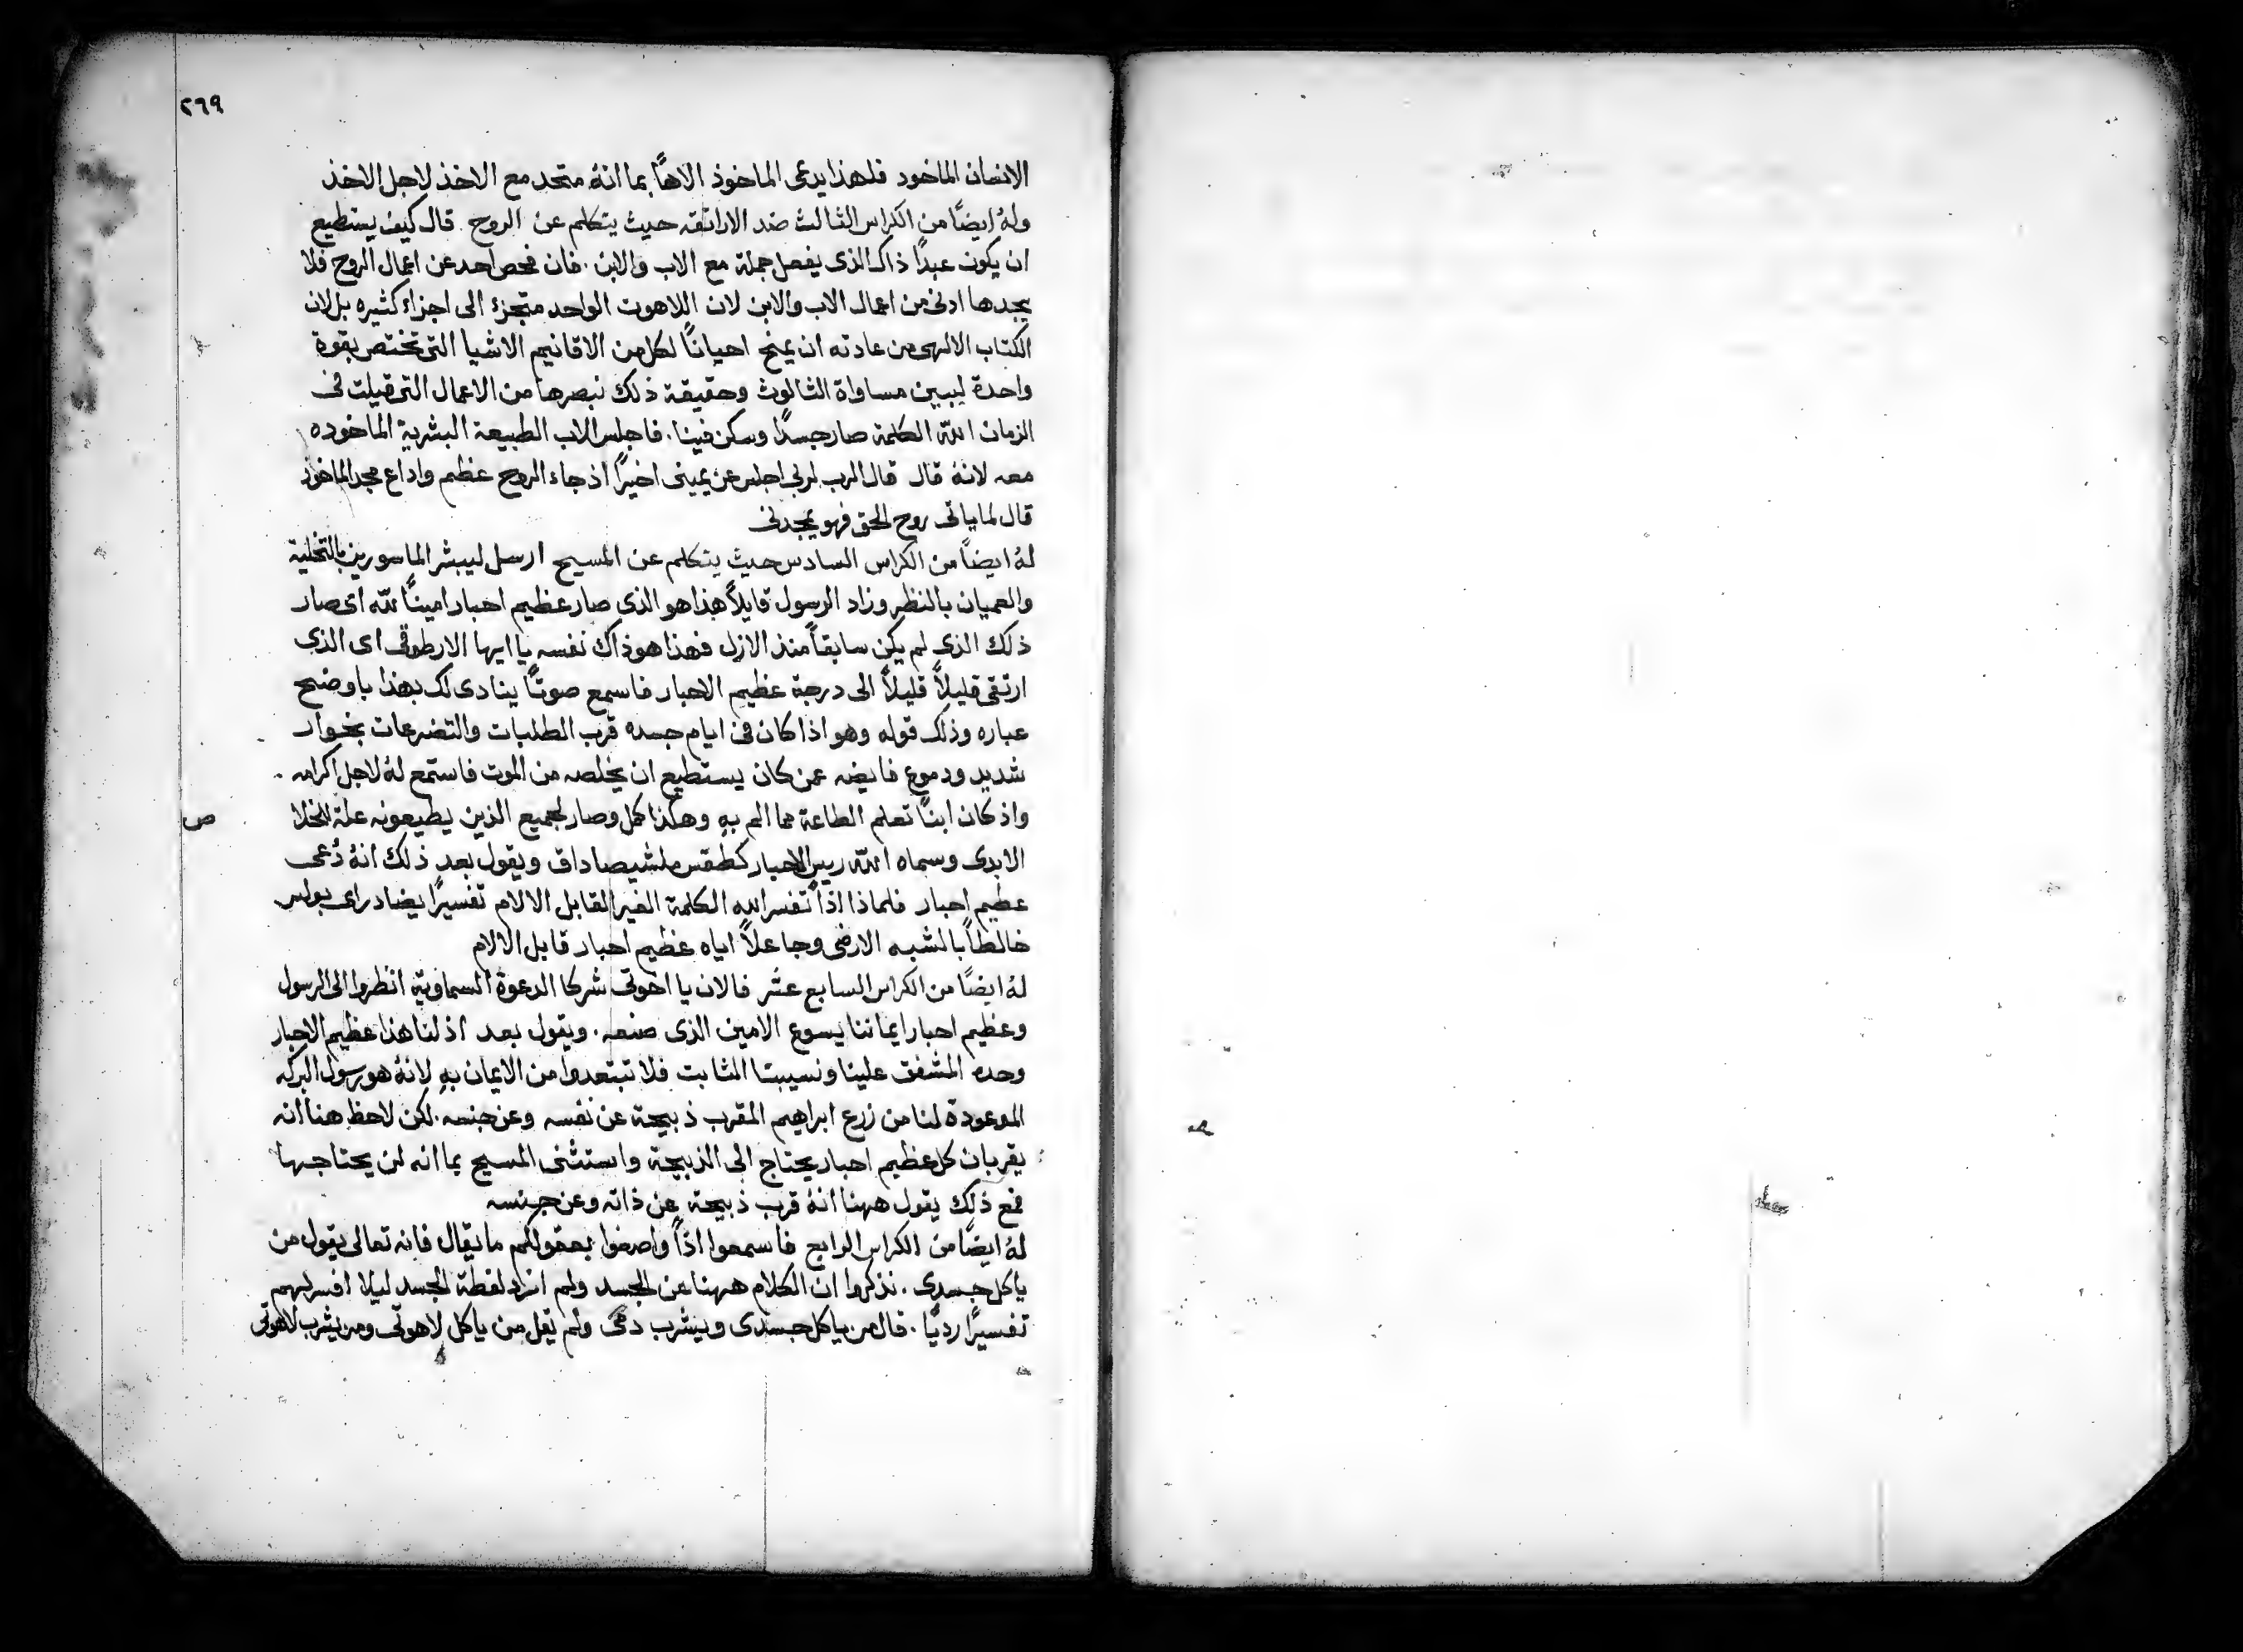 ٢٦٩
الانسان الماخود فلهذا يدعى الماخوذ الاهاً بما انهُ متحد مع الاخذ لاجل الاخذ
ولهُ ايضًا من الكراس الثالث ضد الاراتقه حيث يتكلم عن الروح قال كيف يستطيع
ان يكون عبدًا ذاك الذى يفعل جملة مع الاب والابن . فان فحص احد عن اعمال الروح فلا
يجدها ادنى من اعمال الاب والابن لان اللاهوت الواحد متجزء الى اجزاء كثيره بل لان
الكتاب الالهى من عادته ان يمنح احيانًا لكل من الاقانيم الاشيا التى تختص بقوة
واحدة ليبين مساواة الثالوث وحقيقة ذلك نبصرها من الاعمال التى قيلت فى
الزمان اللّه الكلمة صار جسدًا وسكن فينا . فاجلس الاب الطبيعة البشرية الماخوده
معه لانهُ قال قال الرب لربى اجلس عن يمينى اخيرًا اذ جاء الروح عظم واداع مجد الماخوذ
قال لما ياتى روح الحق فهو يمجدنى
لهُ ايضًا من الكراس السادس حيث يتكلم عن المسيح ارسل ليبشر الماسورين بالتخلية
والعميان بالنظر وزاد الرسول قايلاً هذا هو الذى صار عظيم احبار امينًا للّه اى صار
ذلك الذى لم يكن سابقاً منذ الازل فهذا هو ذاك نفسه يا ايها الارطوقى اى الذى
ارتقى قليلاً قليلاً الى درجة عظيم الاحبار فاسمع صوتًا ينادى لك بهذا باوضح
عباره وذلك قوله وهو اذا كان فى ايام جسده قرب الطلبات والتضرعات بخوار
شديد ودموع فايضه عمن كان يستطيع ان يخلصه من الموت فاستمع لهُ لاجل اكرامه .
واذ كان ابنًا تعلم الطاعة مما الم بهِ وهكذا كمل وصار لجميع الذين يطيعونه علة للخلا
ص
الابدى وسماه اللّه ريس الاحبار كطقس ملشيصاداق ويقول بعد ذلك انهُ دُعى
عظيم احبار فلماذا اذاً تفسر الله الكلمة الغير القابل الالام تفسيرًا يضاد راى بولس
خالطاً بالشبه الارضى وجاعلاً اياه عظيم احبار قابل الالام
لهُ ايضًا من الكراس السابع عشر فالان يا اخوتى شركا الدعوة السماوية انظروا الى الرسول
وعظيم احبار ايماننا يسوع الامين الذى صنعه . ويقول بعد اذ لنا هذا عظيم الاحبار
وحده المشفق علينا ونسيبنا الثابت فلا تبتعدوا من الايمان بهِ لانهُ هو رسول البركه
الموعودة لنا من زرع ابراهيم المقرب ذبيحة عن نفسه وعن جنسه . لكن لاحظ هنا انه
يقربان كل عظيم احبار يحتاج الى الذبيحة واستثنى المسيح بما انه لن يحتاجها
فمع ذلك يقول ههنا انهُ قرب ذبيحة عن ذاته وعن جنسه
لهُ ايضًا من الكراس الرابع فاسمعوا اذاً واصغوا بعقولكم ما يقال فانه تعالى يقول من
ياكل جسدى . نذكروا ان الكلام ههنا عن الجسد ولم ازد لفظة الجسد ليلا افسر لهم
تفسيرًا رديًا . قال من ياكل جسدى ويشرب دمى ولم يقل من ياكل لاهوتى ومن يشرب لاهوتى